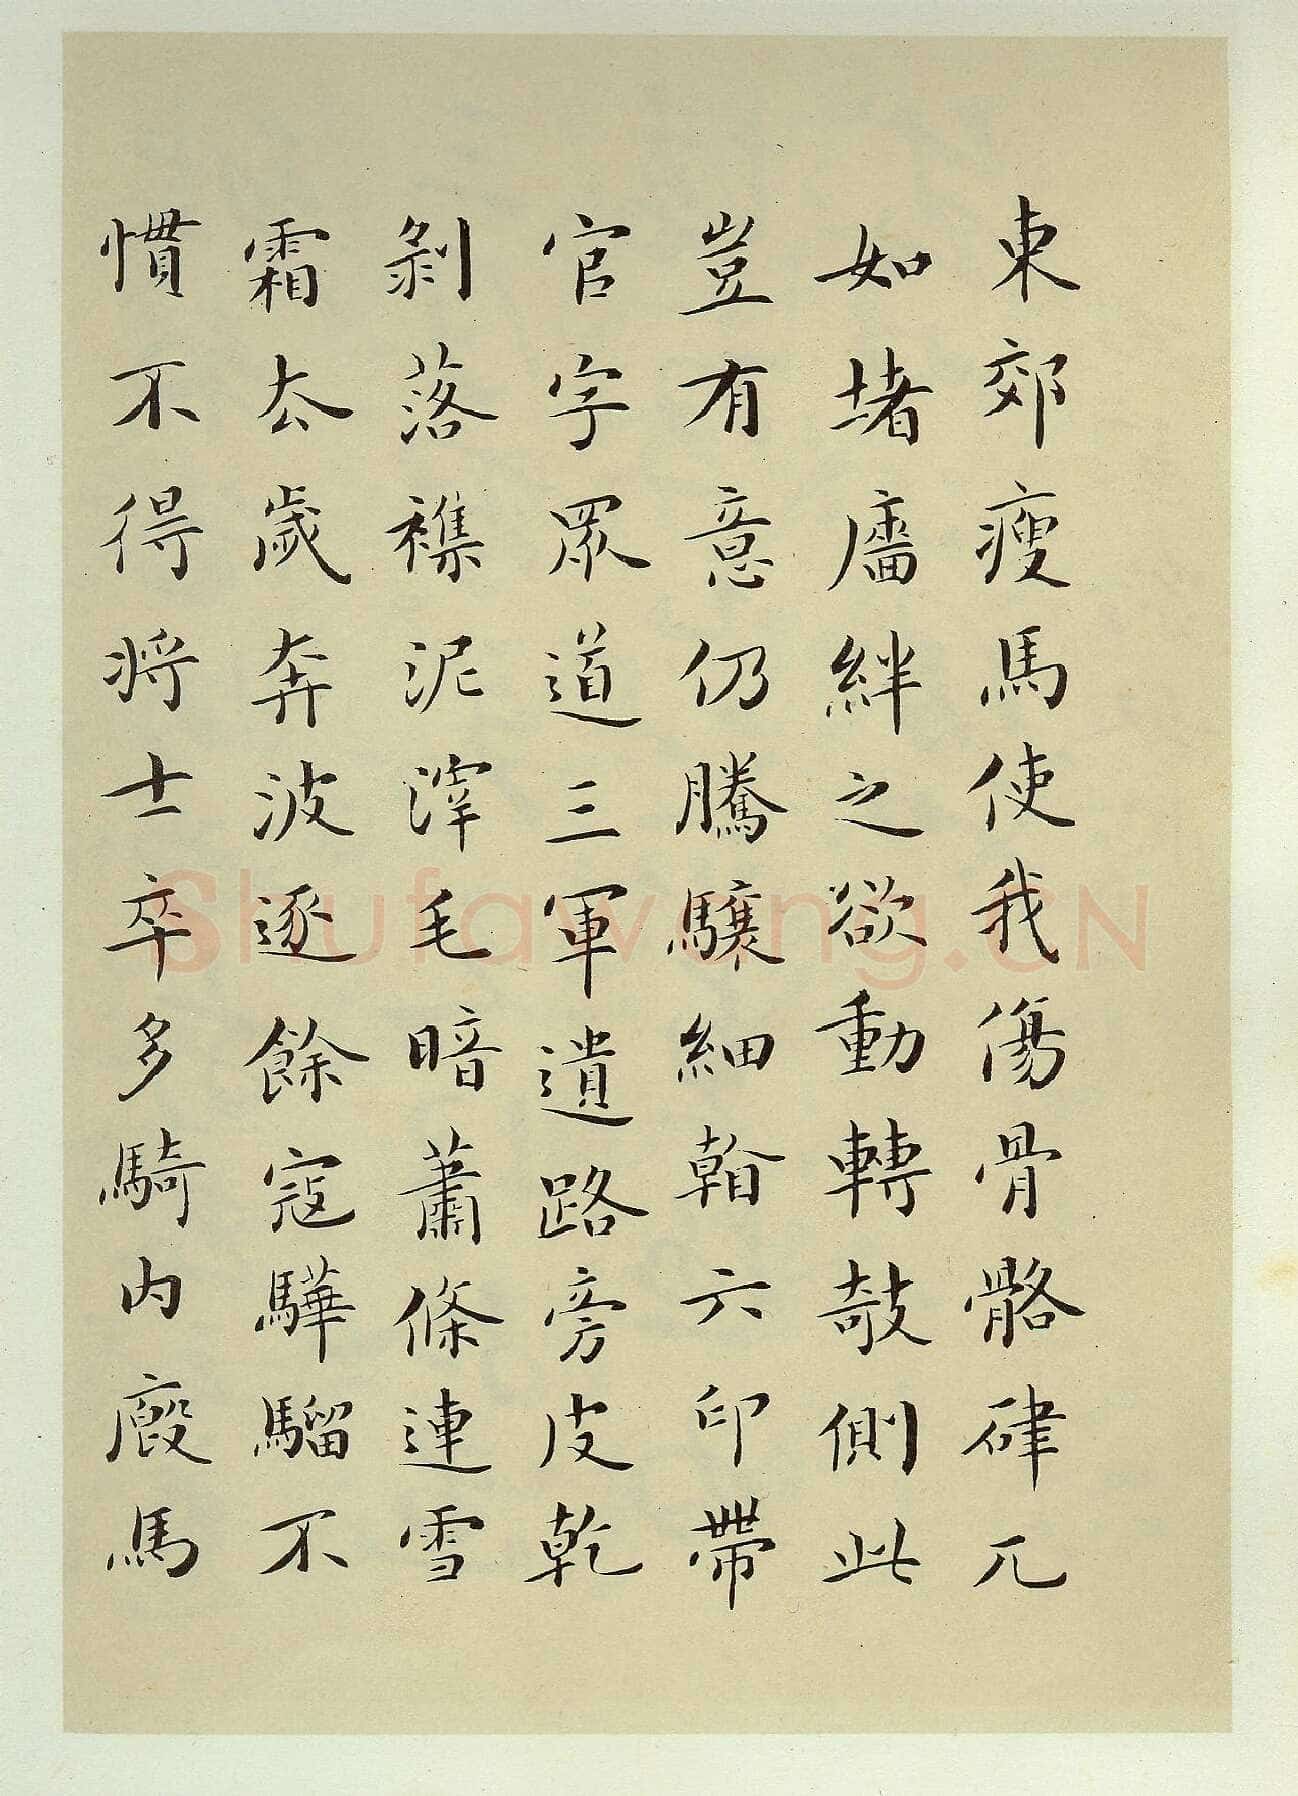 東郊瘦馬使我傷骨骼硉兀
如堵廧絆之欲動轉攲側此
豈有意仍騰驤細看六印帶
官字眾道三軍遺路旁皮乾
剝落襍泥滓毛暗蕭條連雪
霜去歲奔波逐餘寇驊騮不
慣不得將士卒多騎內廄馬
Shufawang.CN